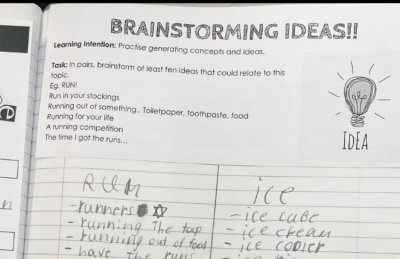 BRAINSTORMING IDEAS!!
Learning Intention: Practise generating concepts and ideas.
Task: In pairs, brainstorm at least ten ideas that could relate to this
topic.
Eg. RUN!
Run in your stockings
Running out of something.. Toiletpaper, toothpaste, food
Running for your life
A running competition
The time I got the runs...
IDEA
RUN
- runners
- running the tap
- running out of food
- have the runs
ice
- ice cube
- ice cream
- ice